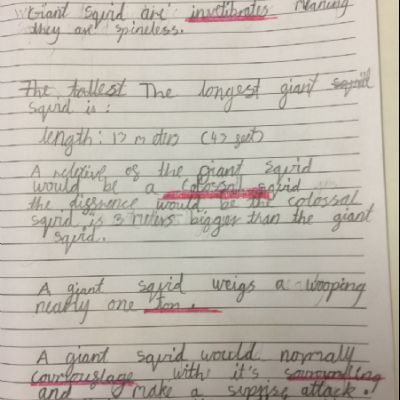 Giant squid are invetibrates meaning
they are spineless.
The tallest The longest giant squid
squid is :
length : 13 meters (43 feet)
A reletive of the giant squid
would be a colossal squid
the diffrence would be the colossal
squid is 3 meters bigger than the giant
squid.
A giant squid weigs a wooping
nearly one ton .
A giant squid would normaly
camouflage with it's sorrounding
and make a suprise attack.